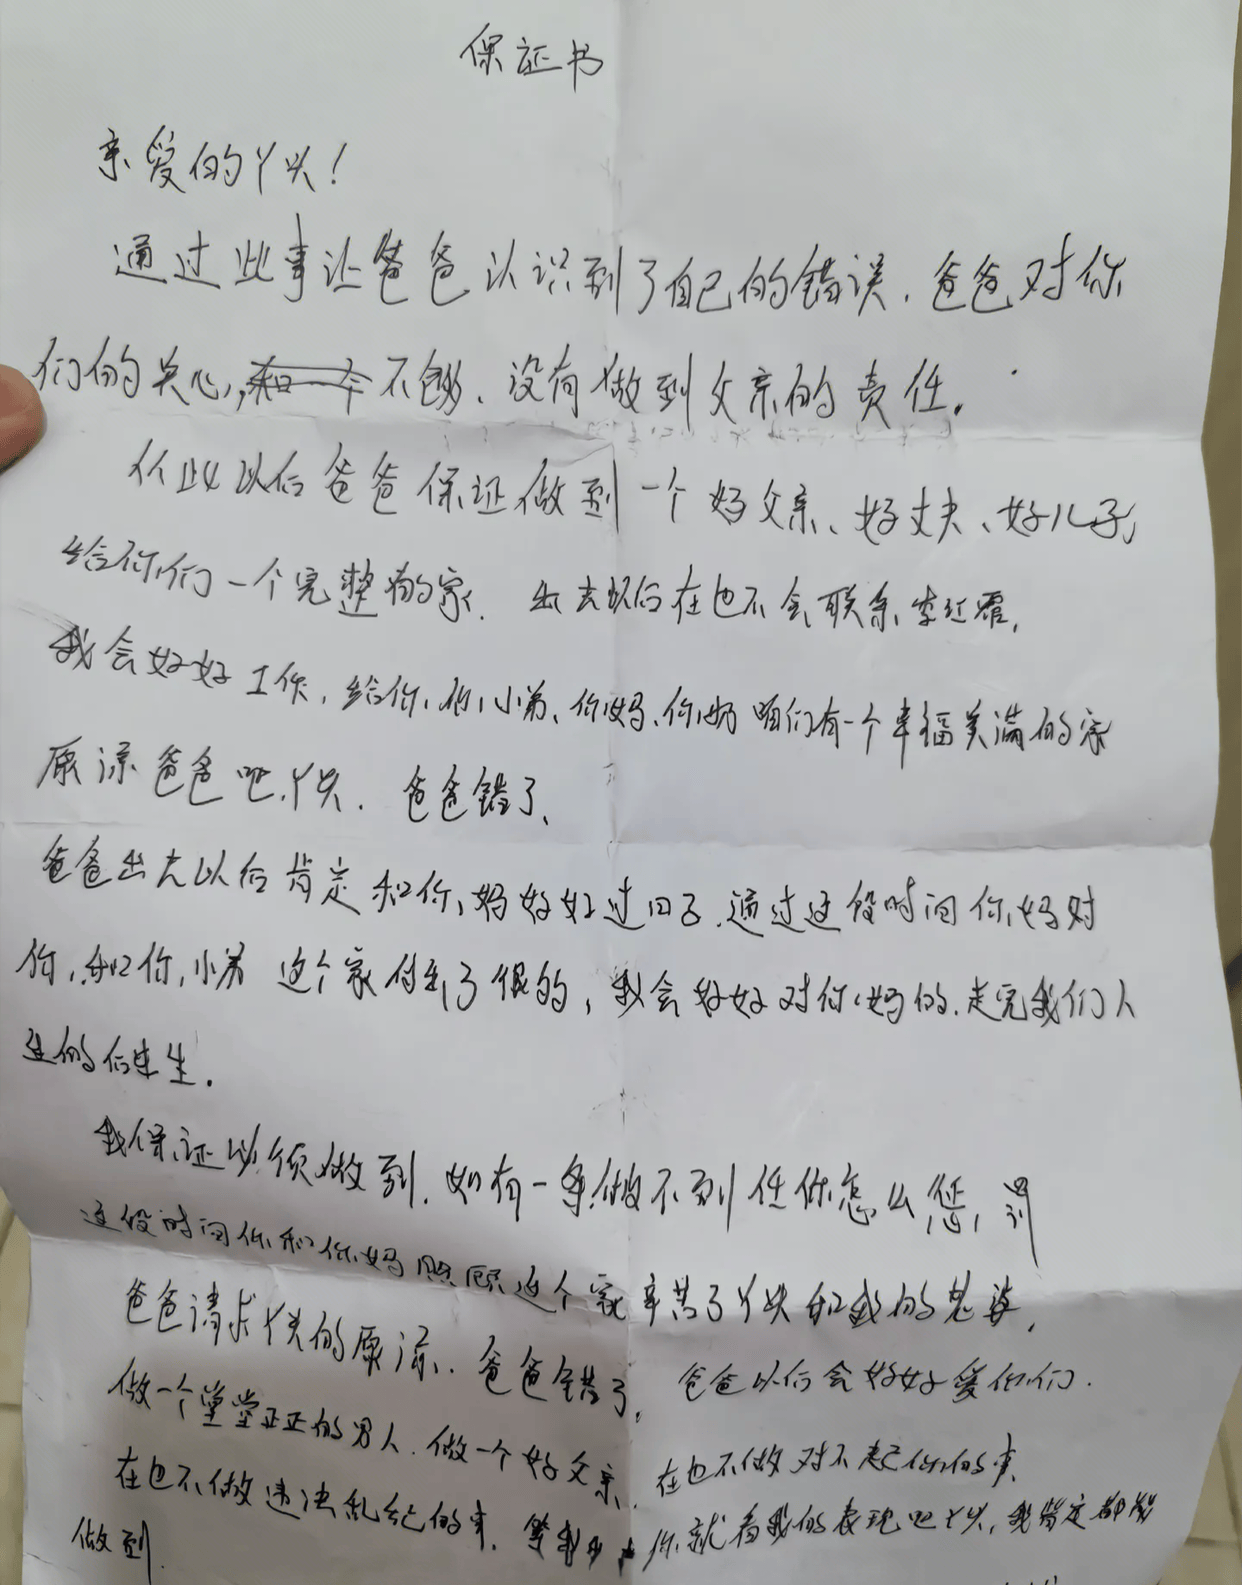 保证书
亲爱的丫头！
通过此事让爸爸认识到了自己的错误，爸爸对你
们的关心，不够、没有做到父亲的责任。
从此以后爸爸保证做到一个好父亲、好丈夫、好儿子，
给你们一个完整的家。出去以后在也不会联系李红霞，
我会好好工作，给你，你小弟、你妈、你奶咱们有一个幸福美满的家
原谅爸爸吧丫头. 爸爸错了、
爸爸出去以后肯定和你妈好好过日子.通过这段时间你妈对
你，和你小弟 这个家付出了很的，我会好好对你妈的.走完我们人
生的后半生.
我保证必须做到. 如有一条做不到任你怎么 罚
这段时间你和你妈照顾这个家辛苦了丫头和我的老婆，
爸爸请求丫头的原谅. 爸爸错了. 爸爸以后会好好爱你们.
做一个堂堂正正的男人. 做一个好父亲、在也不做对不起你们的事.
在也不做违法乱纪的事. 等我 你就看我的表现吧丫头, 我肯定都能
做到.